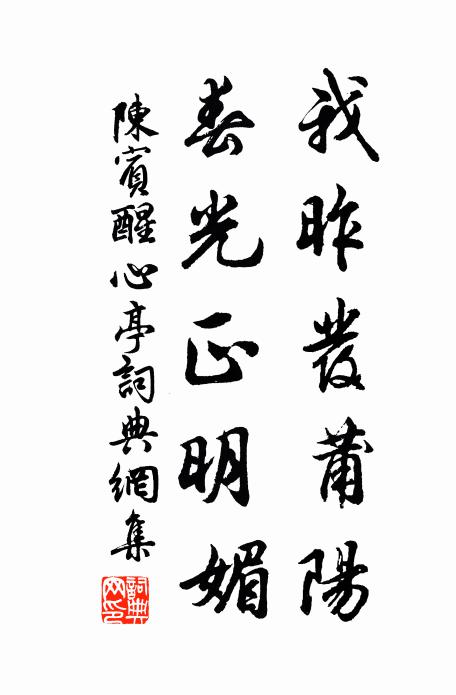 我昨發莆陽
春光正明媚
陳賓醒心亭詞典網集
詞典網印